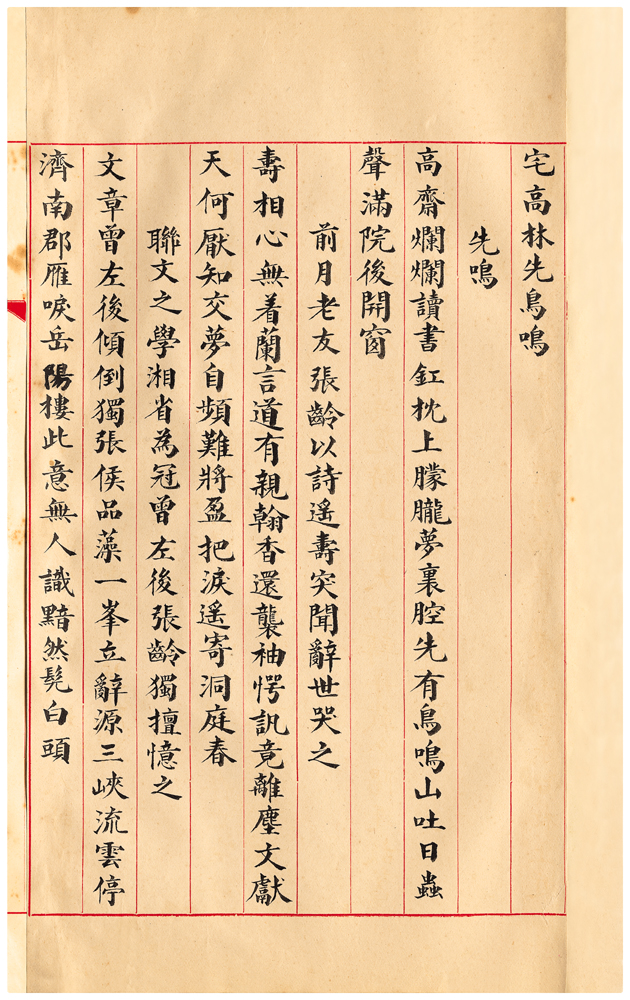 宅高林先鳥鳴
先鳴
高齋爛爛讀書釭枕上朦朧夢裏腔先有鳥鳴山吐日蟲
聲滿院後開窗
前月老友張齡以詩遙壽突聞辭世哭之
壽相心無着蘭言道有親翰香還襲袖愕訊竟離塵文獻
天何厭知交夢自頻難將盈把淚遙寄洞庭春
聯文之學湘省為冠曾左後張齡獨擅憶之
文章曾左後傾倒獨張侯品藻一峯立辭源三峽流雲停
濟南郡雁唳岳陽樓此意無人識黯然髡白頭